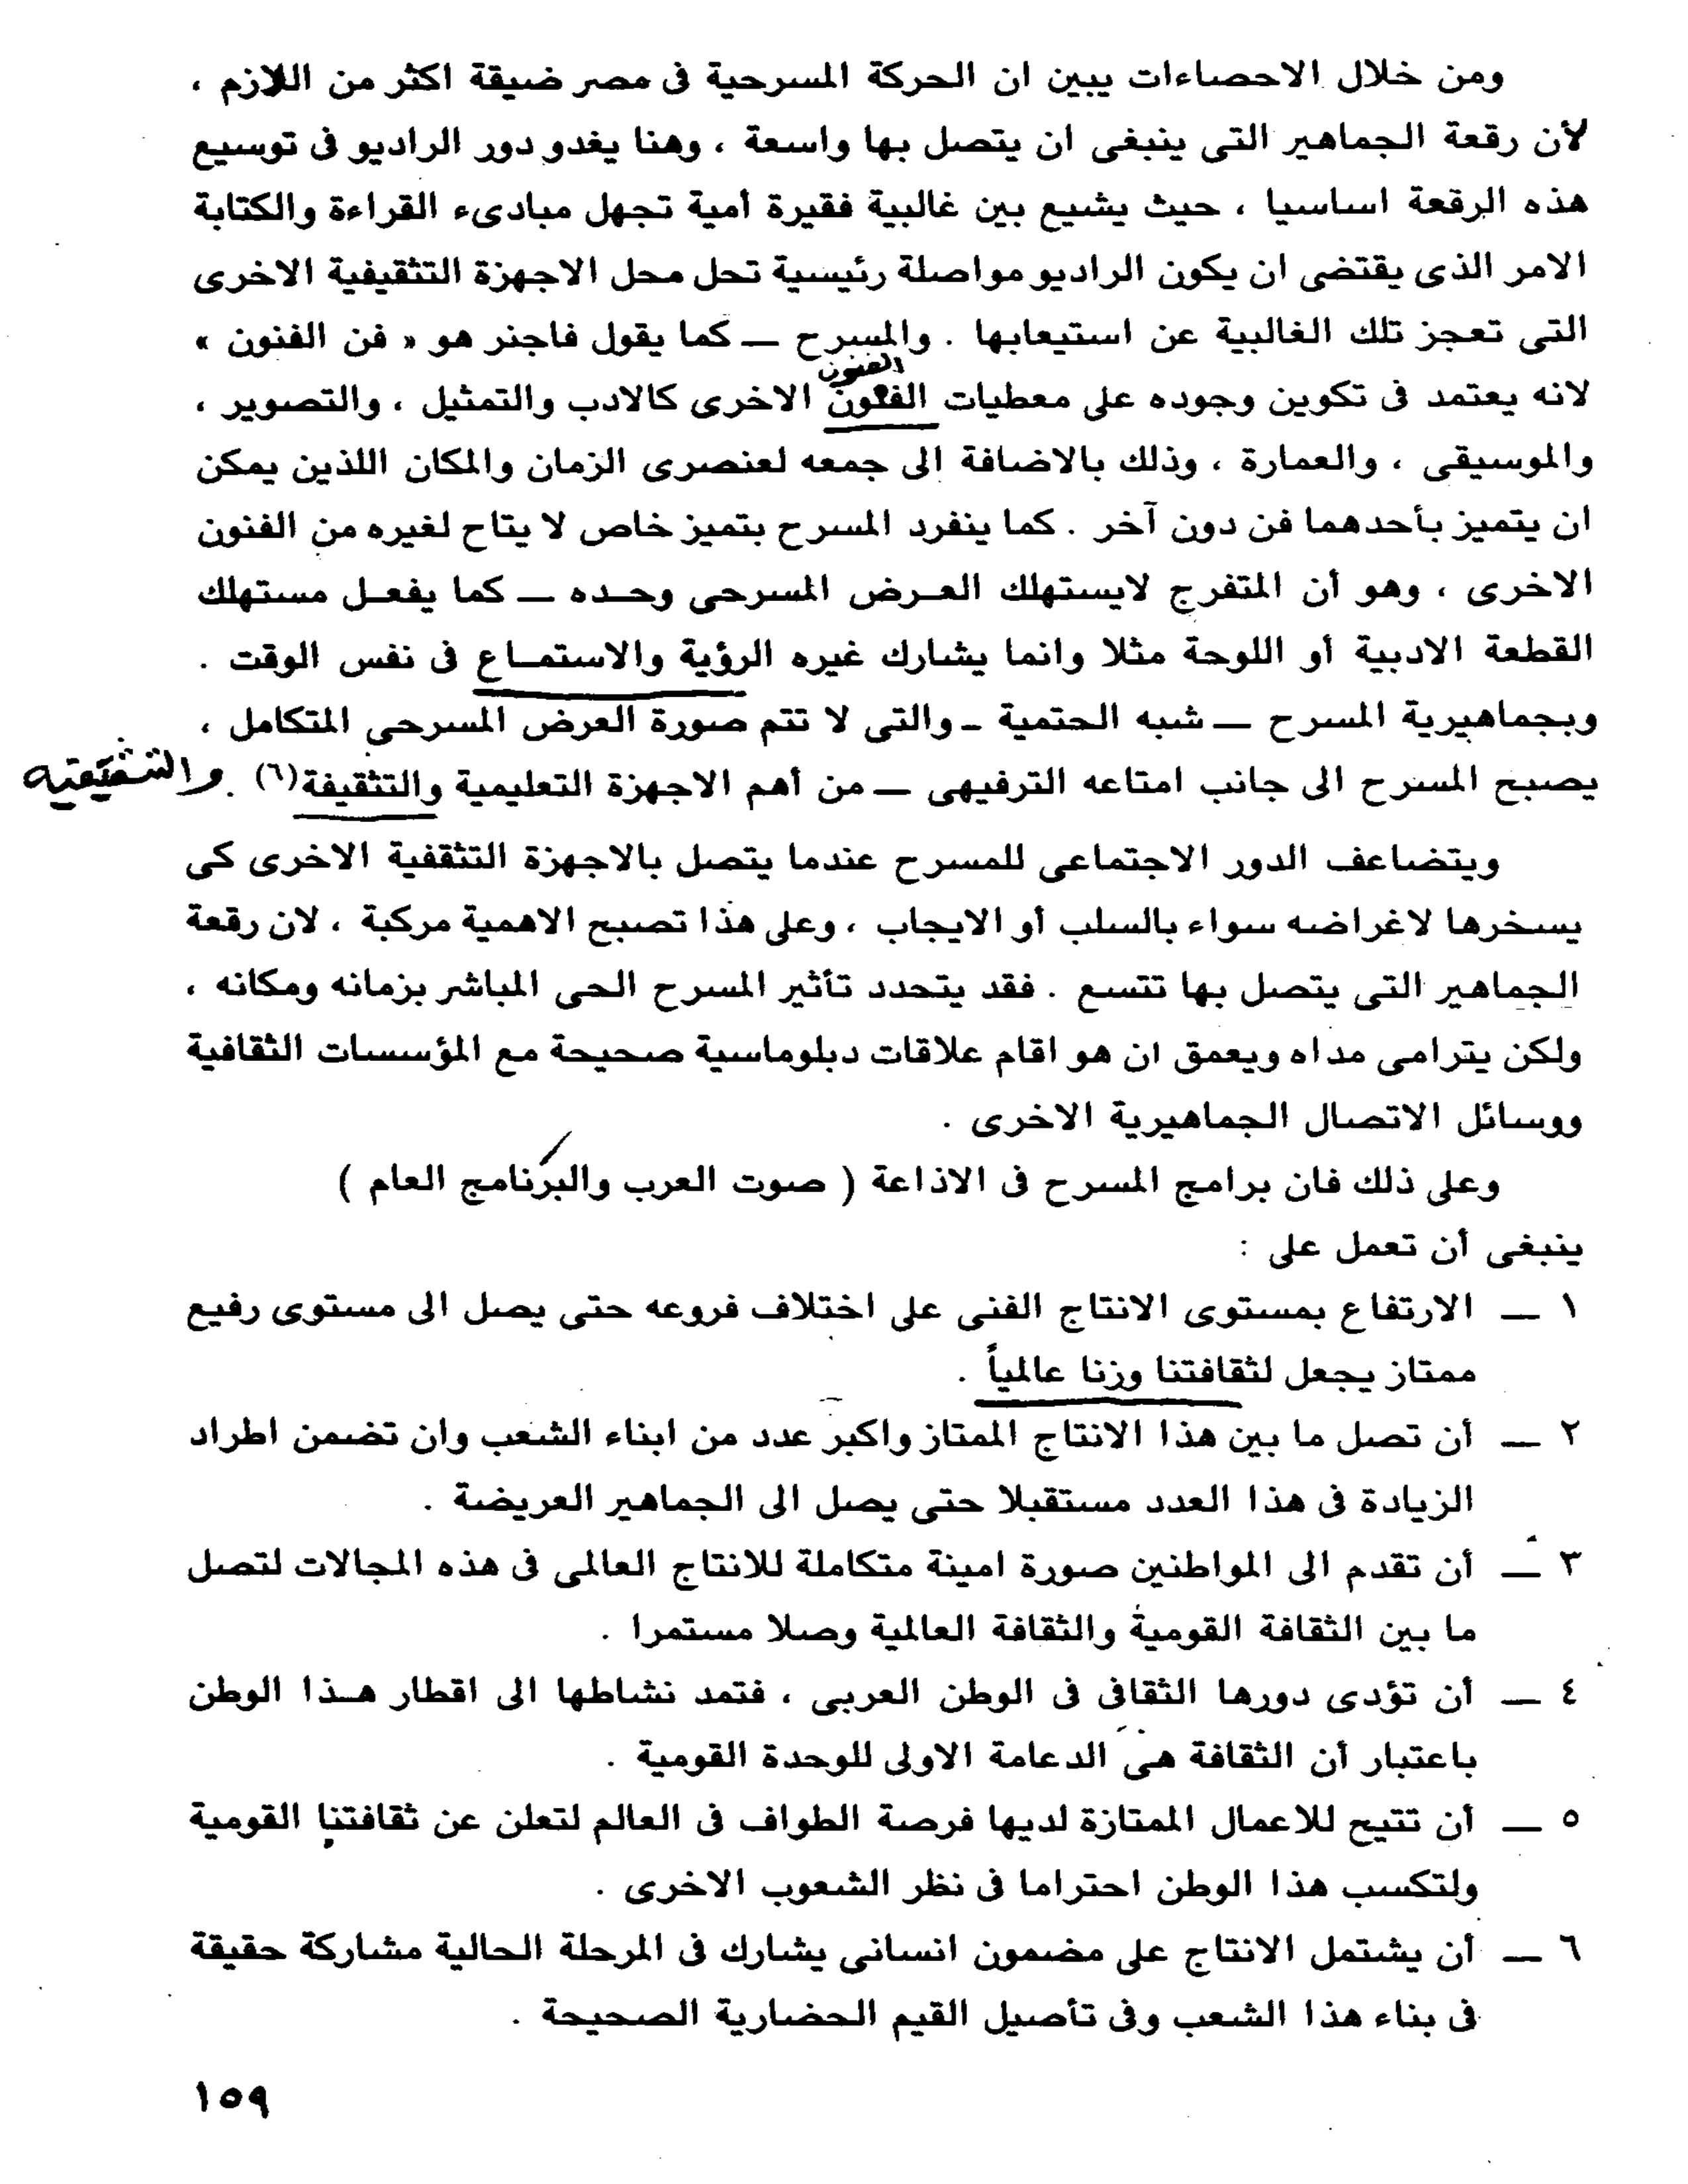 ومن خلال الاحصاءات يبين ان الحركة المسرحية فى مصر ضيقة اكثر من اللازم ،
لأن رقعة الجماهير التى ينبغى ان يتصل بها واسعة ، وهنا يغدو دور الراديو فى توسيع
هذه الرقعة اساسيا ، حيث يشيع بين غالبية فقيرة أمية تجهل مبادىء القراءة والكتابة
الامر الذى يقتضى ان يكون الراديو مواصلة رئيسية تحل محل الاجهزة التثقيفية الاخرى
التى تعجز تلك الغالبية عن استيعابها . والمسرح — كما يقول فاجنر هو « فن الفنون »
الفنون
لانه يعتمد فى تكوين وجوده على معطيات الفنون الاخرى كالادب والتمثيل ، والتصوير ،
والموسيقى ، والعمارة ، وذلك بالاضافة الى جمعه لعنصرى الزمان والمكان اللذين يمكن
ان يتميز بأحدهما فن دون آخر . كما ينفرد المسرح بتميز خاص لا يتاح لغيره من الفنون
الاخرى ، وهو أن المتفرج لايستهلك العـرض المسرحى وحـده — كما يفعـل مستهلك
القطعة الادبية أو اللوحة مثلا وانما يشارك غيره الرؤية والاستمـاع فى نفس الوقت .
وبجماهيرية المسرح — شبه الحتمية - والتى لا تتم صورة العرض المسرحى المتكامل ،
يصبح المسرح الى جانب امتاعه الترفيهى — من أهم الاجهزة التعليمية والتثقيفة(٦) . والتثقيفيه
ويتضاعف الدور الاجتماعى للمسرح عندما يتصل بالاجهزة التثقفية الاخرى كى
يسخرها لاغراضه سواء بالسلب أو الايجاب ، وعلى هذا تصبح الاهمية مركبة ، لان رقعة
الجماهير التى يتصل بها تتسع . فقد يتحدد تأثير المسرح الحى المباشر بزمانه ومكانه ،
ولكن يترامى مداه ويعمق ان هو اقام علاقات دبلوماسية صحيحة مع المؤسسات الثقافية
ووسائل الاتصال الجماهيرية الاخرى .
وعلى ذلك فان برامج المسرح فى الاذاعة ( صوت العرب والبرنامج العام )
ينبغى أن تعمل على :
١ — الارتفاع بمستوى الانتاج الفنى على اختلاف فروعه حتى يصل الى مستوى رفيع
ممتاز يجعل لثقافتنا وزنا عالمياً .
٢ — أن تصل ما بين هذا الانتاج الممتاز واكبر عدد من ابناء الشعب وان تضمن اطراد
الزيادة فى هذا العدد مستقبلا حتى يصل الى الجماهير العريضة .
٣ — أن تقدم الى المواطنين صورة امينة متكاملة للانتاج العالمى فى هذه المجالات لتصل
ما بين الثقافة القومية والثقافة العالمية وصلا مستمرا .
٤ — أن تؤدى دورها الثقافى فى الوطن العربى ، فتمد نشاطها الى اقطار هـذا الوطن
باعتبار أن الثقافة هى الدعامة الاولى للوحدة القومية .
٥ — أن تتيح للاعمال الممتازة لديها فرصة الطواف فى العالم لتعلن عن ثقافتنا القومية
ولتكسب هذا الوطن احتراما فى نظر الشعوب الاخرى .
٦ — أن يشتمل الانتاج على مضمون انسانى يشارك فى المرحلة الحالية مشاركة حقيقة
فى بناء هذا الشعب وفى تأصيل القيم الحضارية الصحيحة .
١٥٩